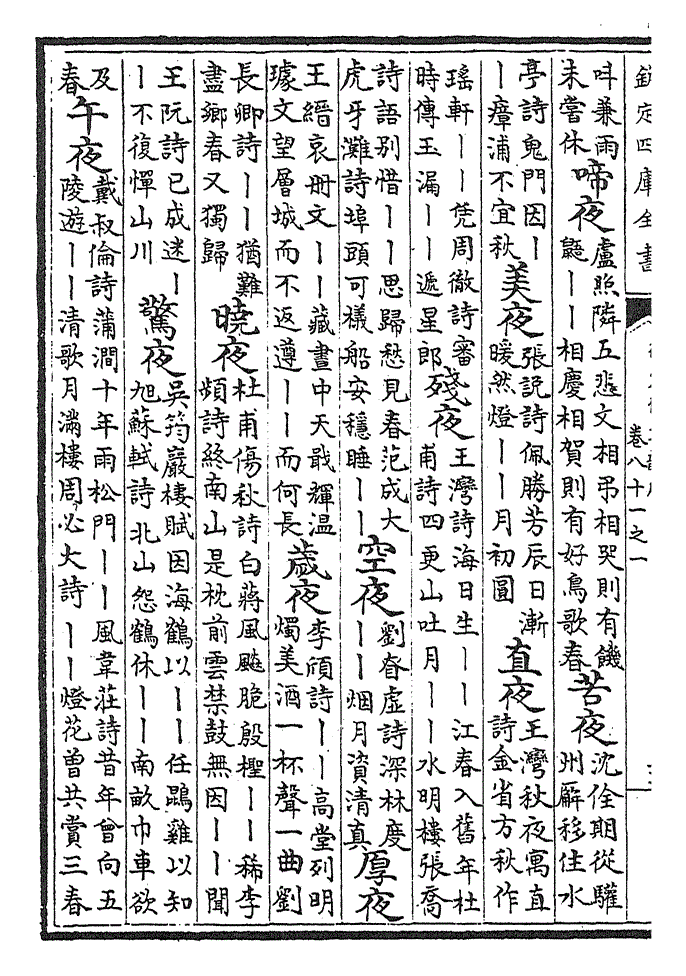 欽定四庫全書
卷八十一之一
呌兼雨
未嘗休
啼夜
盧照隣五悲文相弔相哭則有饑
鼯｜｜相慶相賀則有好鳥歌春
苦夜
沈佺期從驩
州廨移住水
亭詩鬼門因｜
｜瘴浦不宜秋
美夜
張説詩佩勝芳辰日漸
暖然燈｜｜月初圓
直夜
王灣秋夜寓直
詩金省方秋作
瑶軒｜｜凭周徹詩審
時傳玉漏｜｜遞星郎
殘夜
王灣詩海日生｜｜江春入舊年杜
甫詩四更山吐月｜｜水明樓張喬
詩語别惜｜｜思歸愁見春范成大
虎牙灘詩埠頭可檥船安穩睡｜｜
空夜
劉眘虚詩深林度
｜｜烟月資清真
厚夜
王縉哀册文｜｜藏晝中天戢輝温
璩文望層城而不返遵｜｜而何長
歳夜
李頎詩｜｜高堂列明
燭美酒一杯聲一曲劉
長卿詩｜｜猶難
盡鄉春又獨歸
曉夜
杜甫傷秋詩白蔣風飈脆殷檉｜｜稀李
頻詩終南山是枕前雲禁鼓無因｜｜聞
王阮詩已成迷｜
｜不復憚山川
驚夜
吴筠巖棲賦因海鶴以｜｜任鵾雞以知
旭蘇軾詩北山怨鶴休｜｜南畝巾車欲
及
春
午夜
戴叔倫詩蒲澗十年雨松門｜｜風韋莊詩昔年曾向五
陵遊｜｜清歌月滿樓周必大詩｜｜燈花曾共賞三春